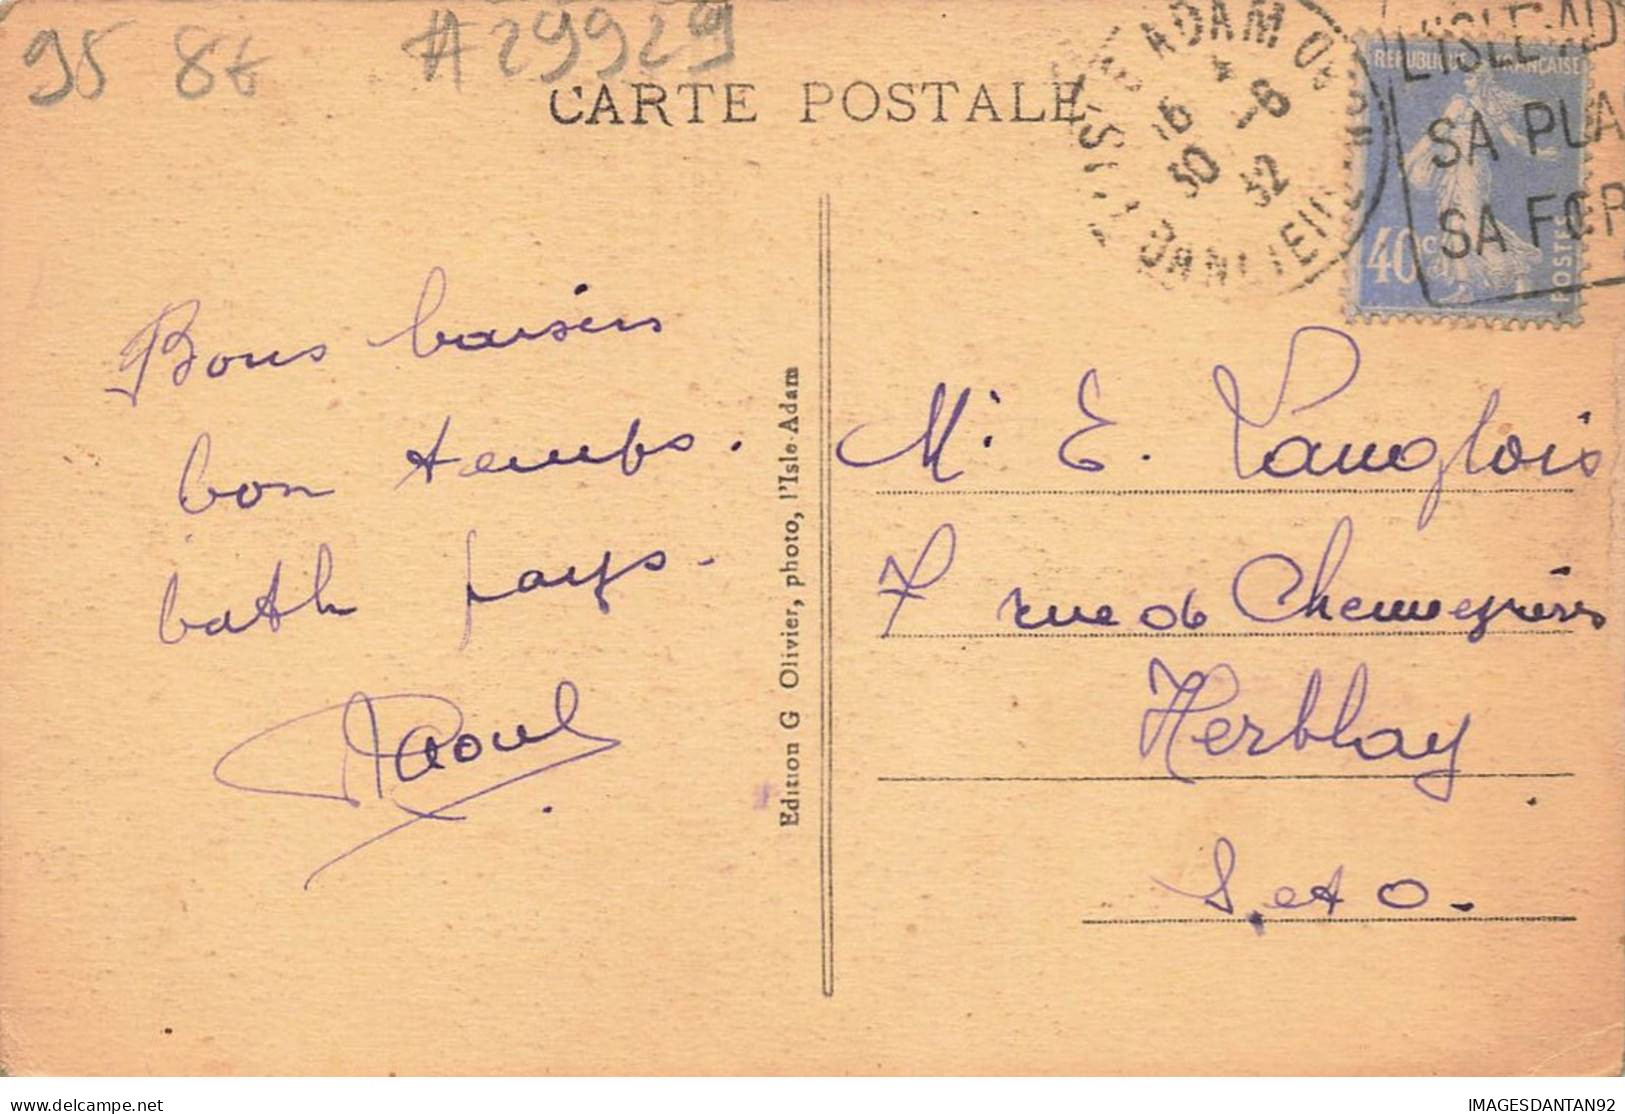 95 8t #29929
CARTE POSTALE
ADAM
16 * -6
30 32
BANLIEUE
L'ISLE-AD
SA PLA
SA FOR
REPUBLIQUE FRANCAISE
40c
POSTES
Bons baisers
bon temps.
bath pays.
Raoul
Edition G Olivier, photo, l'Isle-Adam
Mr E. Langlois
7 rue de
Herblay
S. et O.
delcampe.net
IMAGESDANTAN92